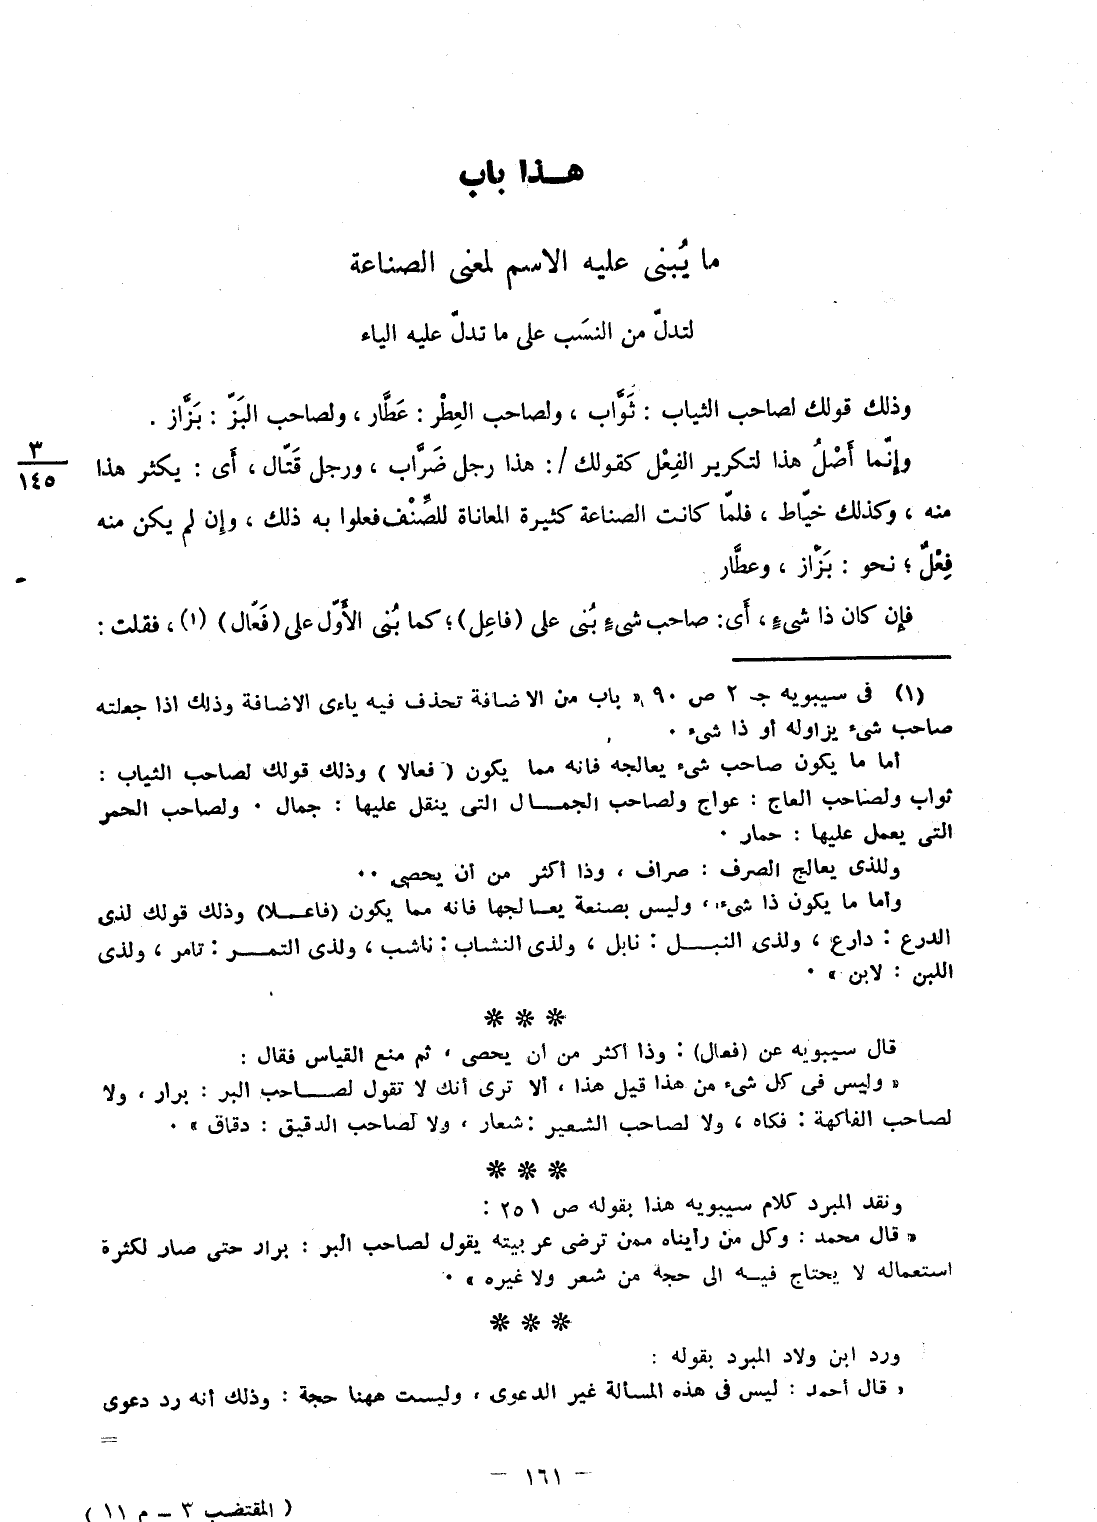 هـــذا باب
ما يُبنى عليه الاسم لمعنى الصناعة
لتدلّ من النسَب على ما تدلّ عليه الياء
وذلك قولك لصاحب الثياب : ثَوَّاب ، ولصاحب العِطْر : عَطَّار ، ولصاحب البَزّ : بَزَّاز .
وإنّما أَصْلُ هذا لتكرير الفِعْل كقولك /: هذا رجل ضَرَّاب ، ورجل قَتّال ، أَى : يكثر هذا
٣
١٤٥
منه ، وكذلك خيّاط ، فلمّا كانت الصناعة كثيرة المعاناة للصِّنْف فعلوا به ذلك ، وإن لم يكن منه
فِعْلٌ ؛ نحو : بَزّاز ، وعطَّار
فإن كان ذا شىءٍ ، أَى: صاحب شىءٍ بُنى على (فاعِل)؛ كما بُنى الأَوّل على (فَعّال) (١) ، فقلت :
(١) فى سيبويه جـ ٢ ص ٩٠ « باب من الاضافة تحذف فيه ياءى الاضافة وذلك اذا جعلته
صاحب شىء يزاوله أو ذا شىء .
أما ما يكون صاحب شىء يعالجه فانه مما يكون ( فعالا ) وذلك قولك لصاحب الثياب :
ثواب ولصاحب العاج : عواج ولصاحب الجمـــال التى ينقل عليها : جمال . ولصاحب الحمر
التى يعمل عليها : حمار .
وللذى يعالج الصرف : صراف ، وذا أكثر من أن يحصى ..
وأما ما يكون ذا شىء ، وليس بصنعة يعـالجها فانه مما يكون (فاعـــلا) وذلك قولك لذى
الدرع : دارع ، ولذى النبـــل : نابل ، ولذى النشاب : ناشب ، ولذى التمـــر : تامر ، ولذى
اللبن : لابن » .
* * *
قال سيبويه عن (فعال) : وذا أكثر من أن يحصى ، ثم منع القياس فقال :
« وليس فى كل شىء من هذا قيل هذا ، ألا ترى أنك لا تقول لصـــاحب البر : برار ، ولا
لصاحب الفاكهة : فكاه ، ولا لصاحب الشعير : شعار ، ولا لصاحب الدقيق : دقاق » .
* * *
ونقد المبرد كلام سيبويه هذا بقوله ص ٢٥١ :
« قال محمد : وكل من رأيناه ممن ترضى عربيته يقول لصاحب البر : برار حتى صار لكثرة
استعماله لا يحتاج فيـه الى حجة من شعر ولا غيره » .
* * *
ورد ابن ولاد المبرد بقوله :
« قال أحمد : ليس فى هذه المسألة غير الدعوى ، وليست ههنا حجة : وذلك أنه رد دعوى
=
— ١٦١ —
( المقتضب ٣ – م ١١ )